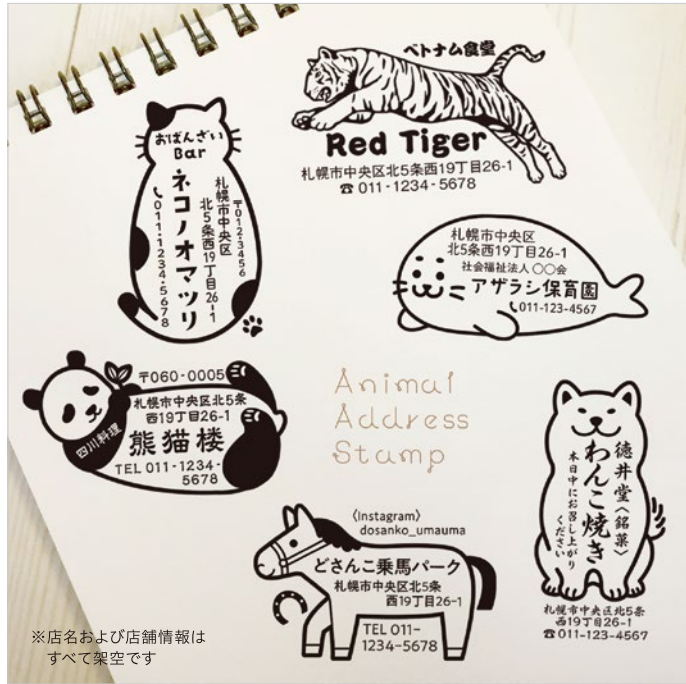 ベトナム食堂
Red Tiger
札幌市中央区北5条西19丁目26-1
☎011-1234-5678
おばんざい
Bar
〒012-3456
札幌市中央区
北5条西19丁目26-1
ネコノオマツリ
011-1234-5678
札幌市中央区
北5条西19丁目26-1
社会福祉法人 〇〇会
アザラシ保育園
011-123-4567
〒060-0005
札幌市中央区北5条
西19丁目26-1
四川料理
熊猫楼
TEL 011-1234-
5678
Animal
Address
Stamp
徳井堂〈銘菓〉
わんこ焼き
本日中にお召し上がり
ください
札幌市中央区北5条
西19丁目26-1
☎011-123-4567
〈Instagram〉
dosanko_umauma
どさんこ乗馬パーク
札幌市中央区北5条
西19丁目26-1
TEL 011-
1234-5678
※店名および店舗情報は
すべて架空です